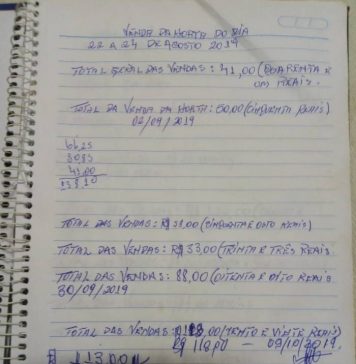 VENDA DA HORTA DO DIA
22 A 24 DE AGOSTO 2019
TOTAL GERAL DAS VENDAS: 41,00 (QUARENTA E
UM REAIS.
TOTAL DA VENDA DA HORTA: 50,00 (CINQUENTA REAIS)
02/09/2019
41,00
TOTAL DAS VENDAS: R$ 58,00 (CINQUENTA E OITO REAIS)
TOTAL DAS VENDAS: R$ 33,00 (TRINTA E TRÊS REAIS
TOTAL DAS VENDAS: 88,00 (OITENTA E OITO REAIS
30/09/2019
TOTAL DAS VENDAS: (SENTO E VINTE REAIS)
R$ 118,00 — 09/10/2019.